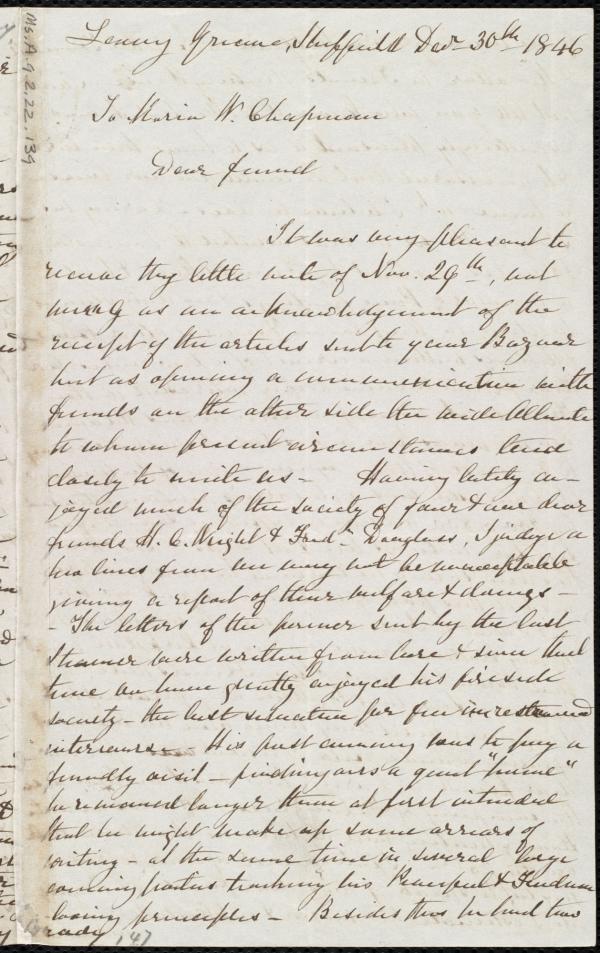 Ms. A. 9. 2. 22. 139
Greave, Sheffield Decr 30th 1846
To Maria W. Chapman
Dear friend
It was very pleasant to
receive thy little note of Nov. 29th, not
merely as an acknowledgement of the
receipt of the articles sent to your Bazaar
but as opening a communication with
friends on the other side the wide Atlantic
to whom present circumstances tend
closely to unite us - Having lately en-
joyed much of the society of your & our dear
friends H. C. Wright & Fredk Douglass, I judge a
few lines from me may not be unacceptable
giving a report of their welfare & doings -
- The letters of the former sent by the last
Steamer were written from here & since that
time we have greatly enjoyed his fireside
society - the best situation for free unrestrained
intercourse - His first coming was to pay a
friendly visit - finding ours a quiet "home"
he remained longer than at first intended
that he might make up some arrears of
writing - at the same time in several large
evening parties teaching his Peaceful & Freedom
loving principles - Besides this he had two
ready
147